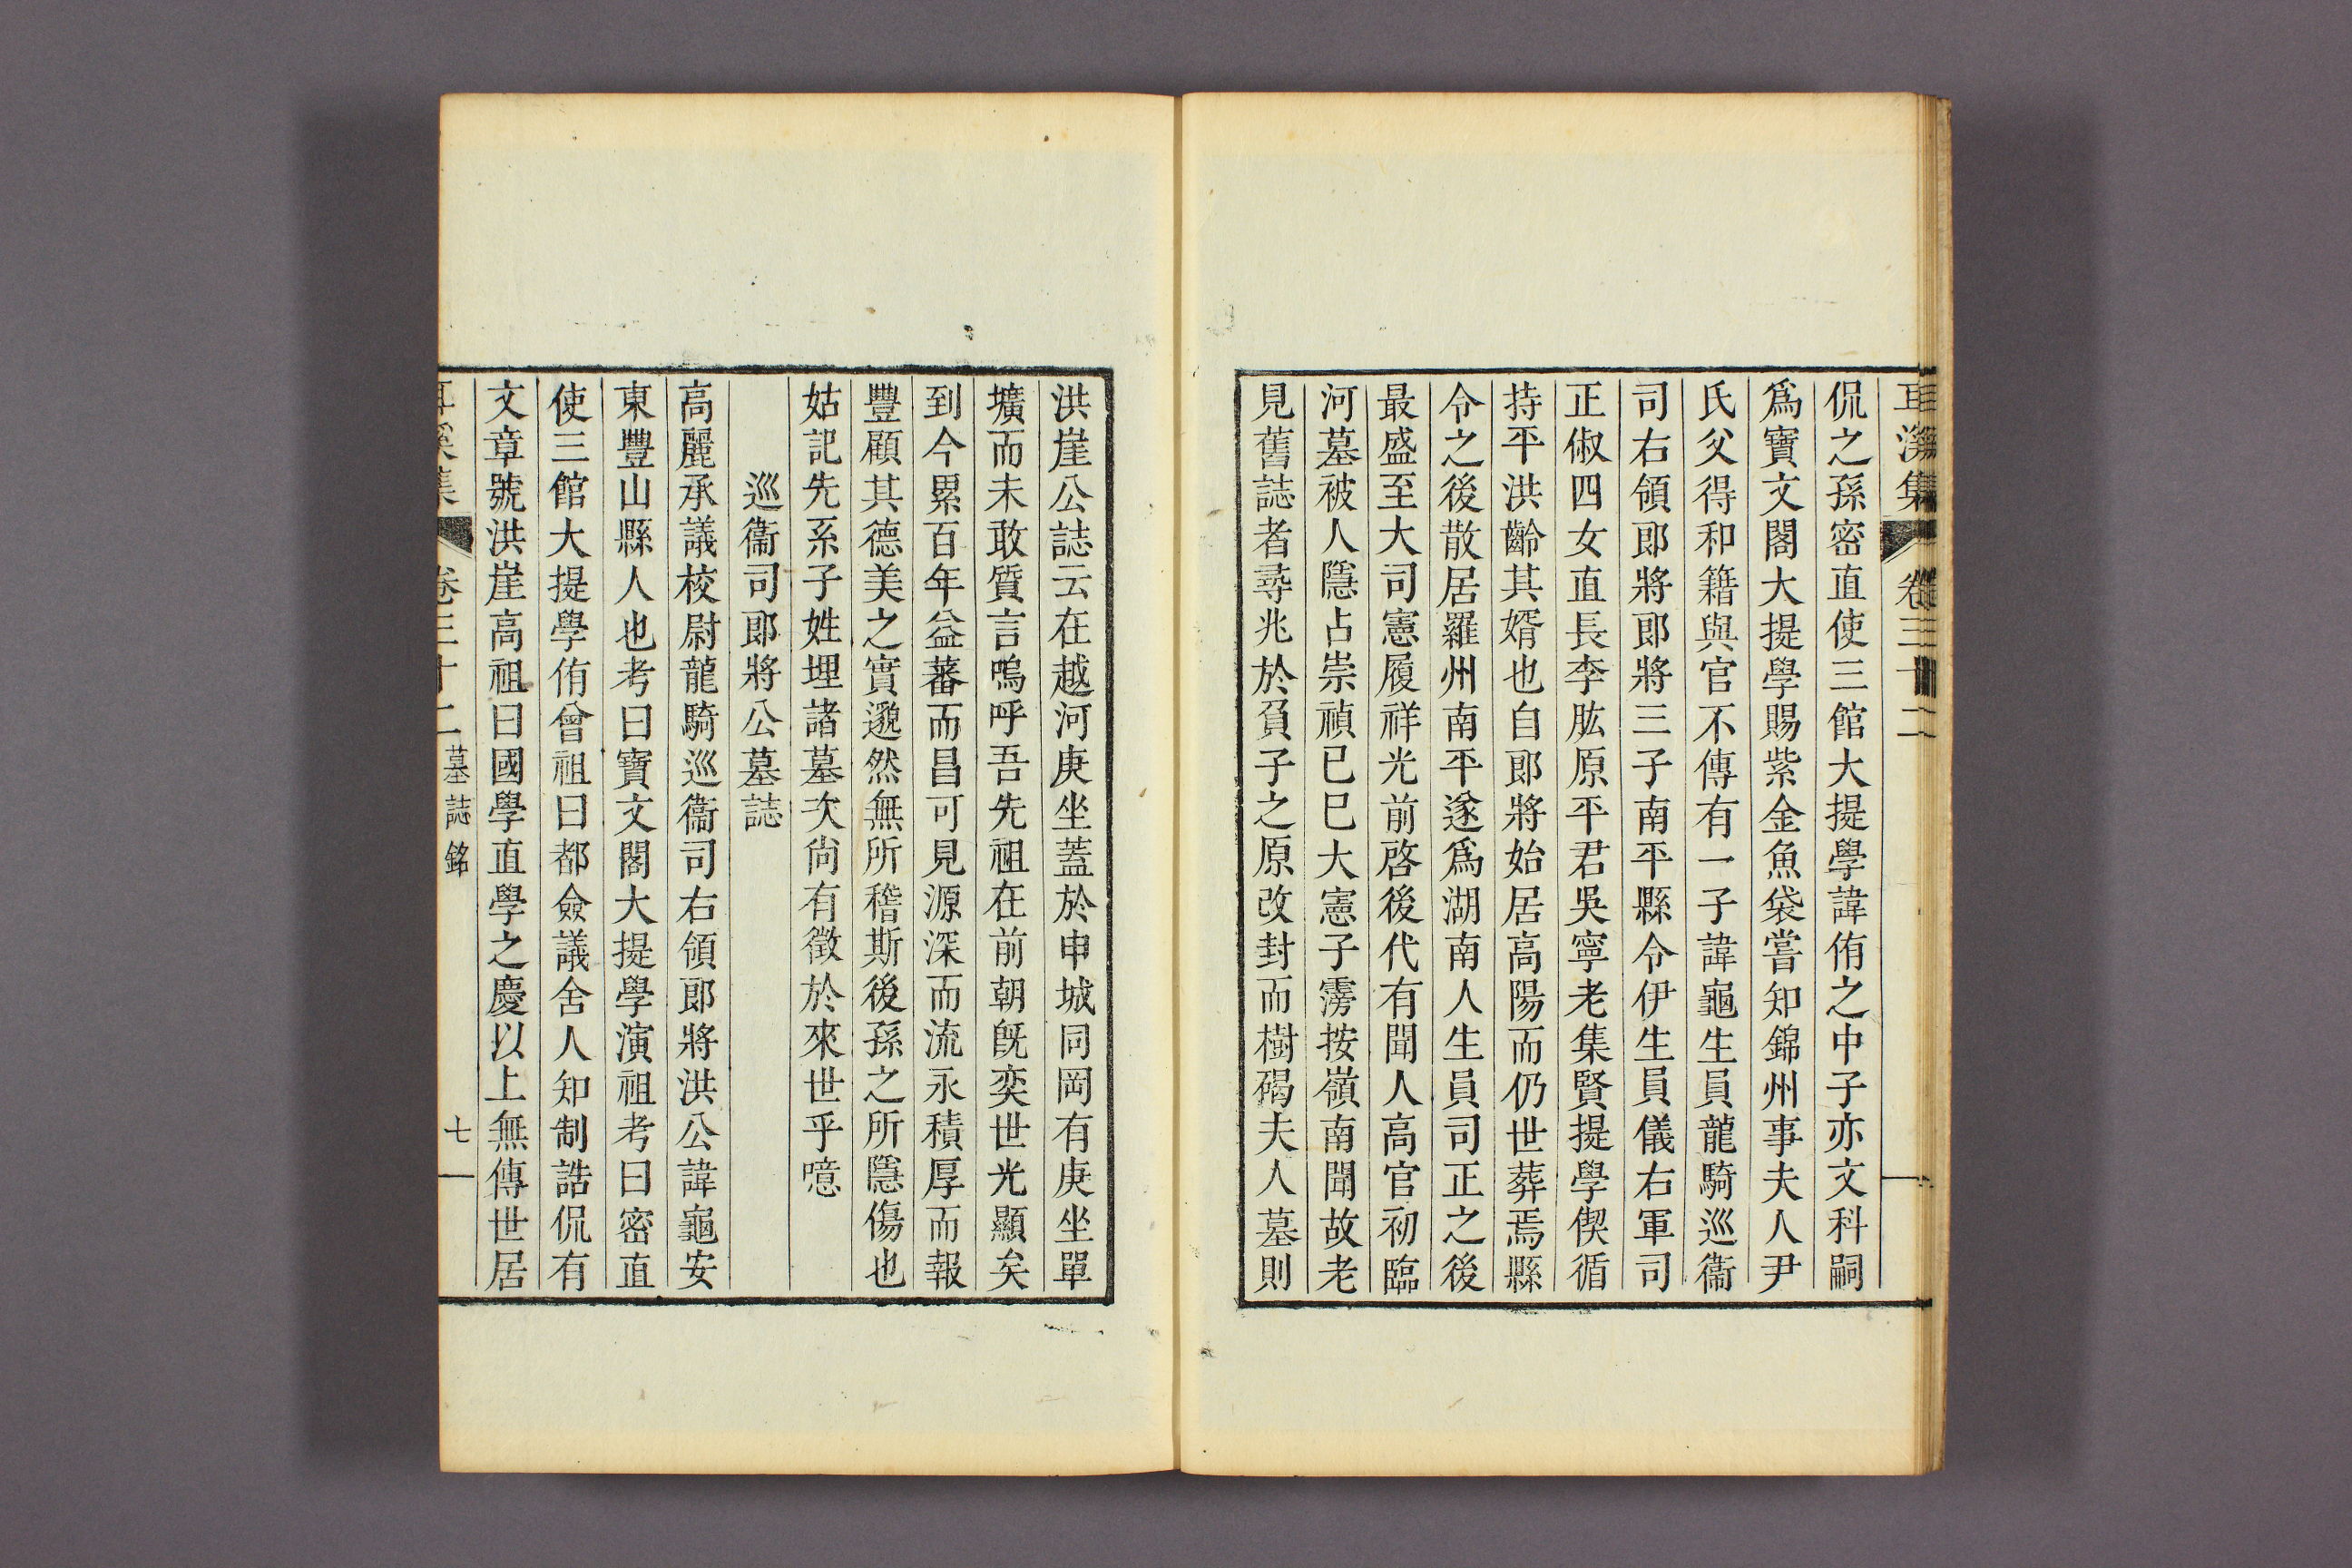 耳溪集 卷三十二
侃之孫密直使三館大提學諱侑之中子亦文科嗣
爲寶文閣大提學賜紫金魚袋嘗知錦州事夫人尹
氏父得和籍與官不傳有一子諱龜生員龍騎巡衞
司右領郎將郎將三子南平縣令伊生員儀右軍司
正俶四女直長李肱原平君吳寧老集賢提學偰循
持平洪齡其婿也自郎將始居高陽而仍世葬焉縣
令之後散居羅州南平遂爲湖南人生員司正之後
最盛至大司憲履祥光前啓後代有聞人高官初臨
河墓被人隱占崇禎己巳大憲子霶按嶺南聞故老
見舊誌者尋兆於負子之原改封而樹碣夫人墓則
洪崖公誌云在越河庚坐蓋於申城同岡有庚坐單
壙而未敢質言嗚呼吾先祖在前朝旣奕世光顯矣
到今累百年益蕃而昌可見源深而流永積厚而報
豐顧其德美之實邈然無所稽斯後孫之所隱傷也
姑記先系子姓埋諸墓次尙有徵於來世乎噫
巡衞司郎將公墓誌
高麗承議校尉龍騎巡衞司右領郎將洪公諱龜安
東豐山縣人也考曰寶文閣大提學演祖考曰密直
使三館大提學侑曾祖曰都僉議舍人知制誥侃有
文章號洪崖高祖曰國學直學之慶以上無傳世居
耳溪集 卷三十二 墓誌銘 七